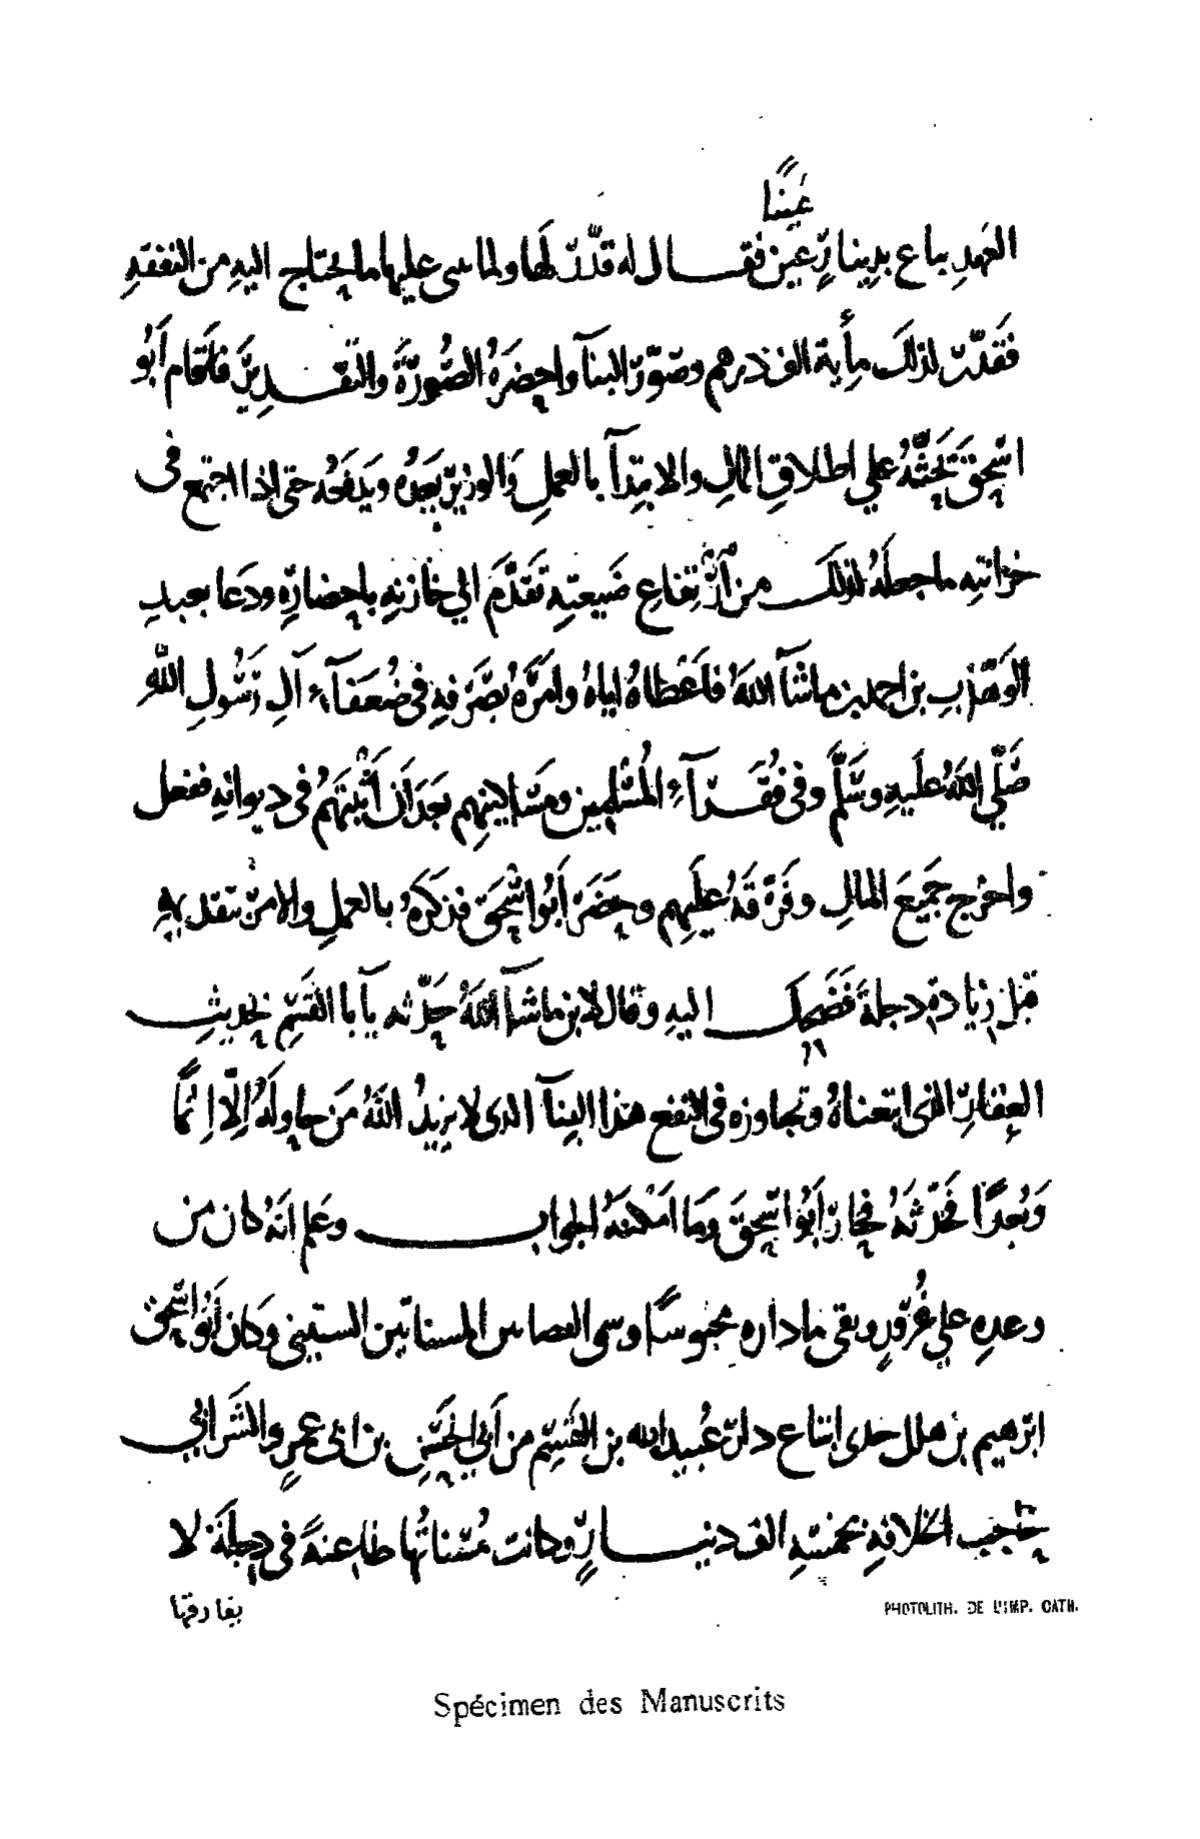 عَينًا
العَهدِ باع بدِينارٍ عَين فقـــال له قدّر لها ولما سى عليها ما يحتاج اليهِ من النفقهِ
فَقَدّر لذلكَ مِأَية الف درهم وصَوّر البنآ واحضَرَهُ الصُّورَةَ والتقـــدِير فَاَقام اَبُو
اسحقَ يَحُثّهُ على اطلاقِ المالِ والابتِدآ بالعملِ وَالوزِير يَعِدُهُ ويَدفعُه حتى اذا اجتمع فى
خزانتِه ما جعلهُ لذلكــ من اَرتفاعِ ضَيعتِهِ تَقَدَّمَ الى خازنهِ باحضارِهِ ودَعَا بعبدِ
الوَهّابِ بن احمد بن ماشآ اللهُ فاَعْطاهُ اياهُ وامَرَهُ بصَرفهِ فى ضُعَفآءِ آلِ رَسُولِ اللهِ
صَلّى اللهُ عَلَيهِ وسَلّم وفى فُقَـرآءِ المُسْلِمين ومَسَاكِينهِم بَعدَ اَن اَثبَتَهُم فى ديوانهِ ففعل
واخرج جَميعَ المالِ وفَرّقَهُ عَلَيهِم وحَضَرَ اَبُو اسْحَقَ فذكَرَهُ بالعملِ والامر بتقديمهِ
قبل زيادة دجلةَ فَضَحِكــــ اليهِ وقَال لابن ماشآ اللهُ حَدّثه يآبا القسِم بحَدِيثِــ
العِقارِ الذى ابتعناهُ وتجاوزه فى النفع هذا البنآ الذى لا يزيدُ اللهُ مَن حاولَهُ اِلّا اِثمًا
وَبُعدًا فَحَدّثهُ فحَارَ اَبُو اسحقَ وَما اَمْكنهُ الجوابــــ وعَلم اَنَهُ كان من
وعدِهِ على غُرُورٍ وبقى ما داره محبوسًا وسى العصاس المسناتين الستينى وكان اَبُو اسحق
ابرهيم بن هلل حدى ابتاع دار عُبيد الله بن القسِم من اَبى الحَسَنِ بن ابى عمرٍو الشَرابِى
حَاجب الخلافهِ بخمسَهِ الف دينـــارٍ وكانت مُسَناتُها طاعِنةً فى دِجلَةَ لا
يفارقها
PHOTOLITH. DE L'IMP. CATH.
Spécimen des Manuscrits